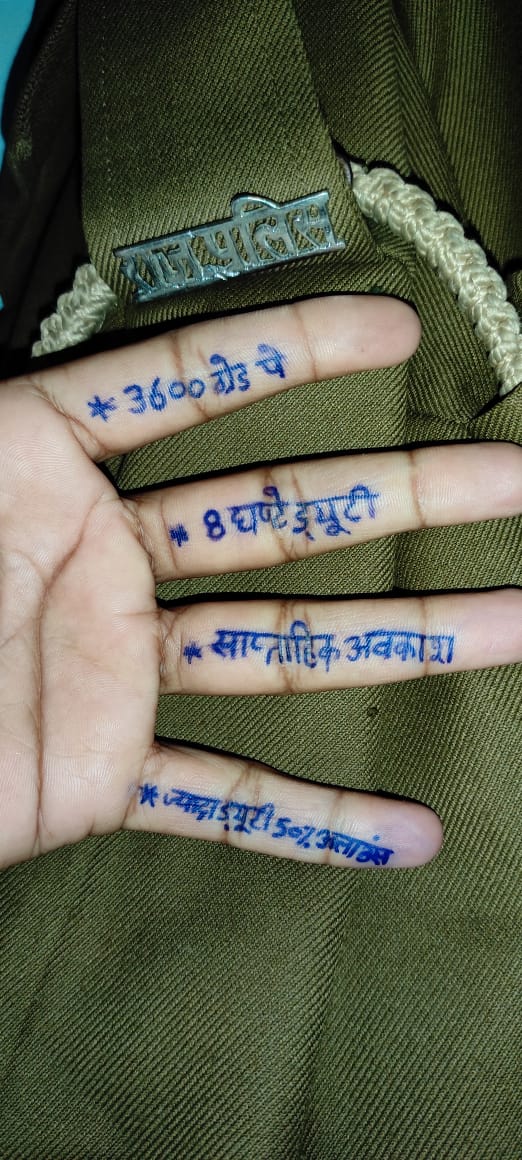 राज पुलिस
* 3600 ग्रेड पे
* 8 घण्टे ड्यूटी
* साप्ताहिक अवकाश
* ज्यादा ड्यूटी 50% अलाउंस